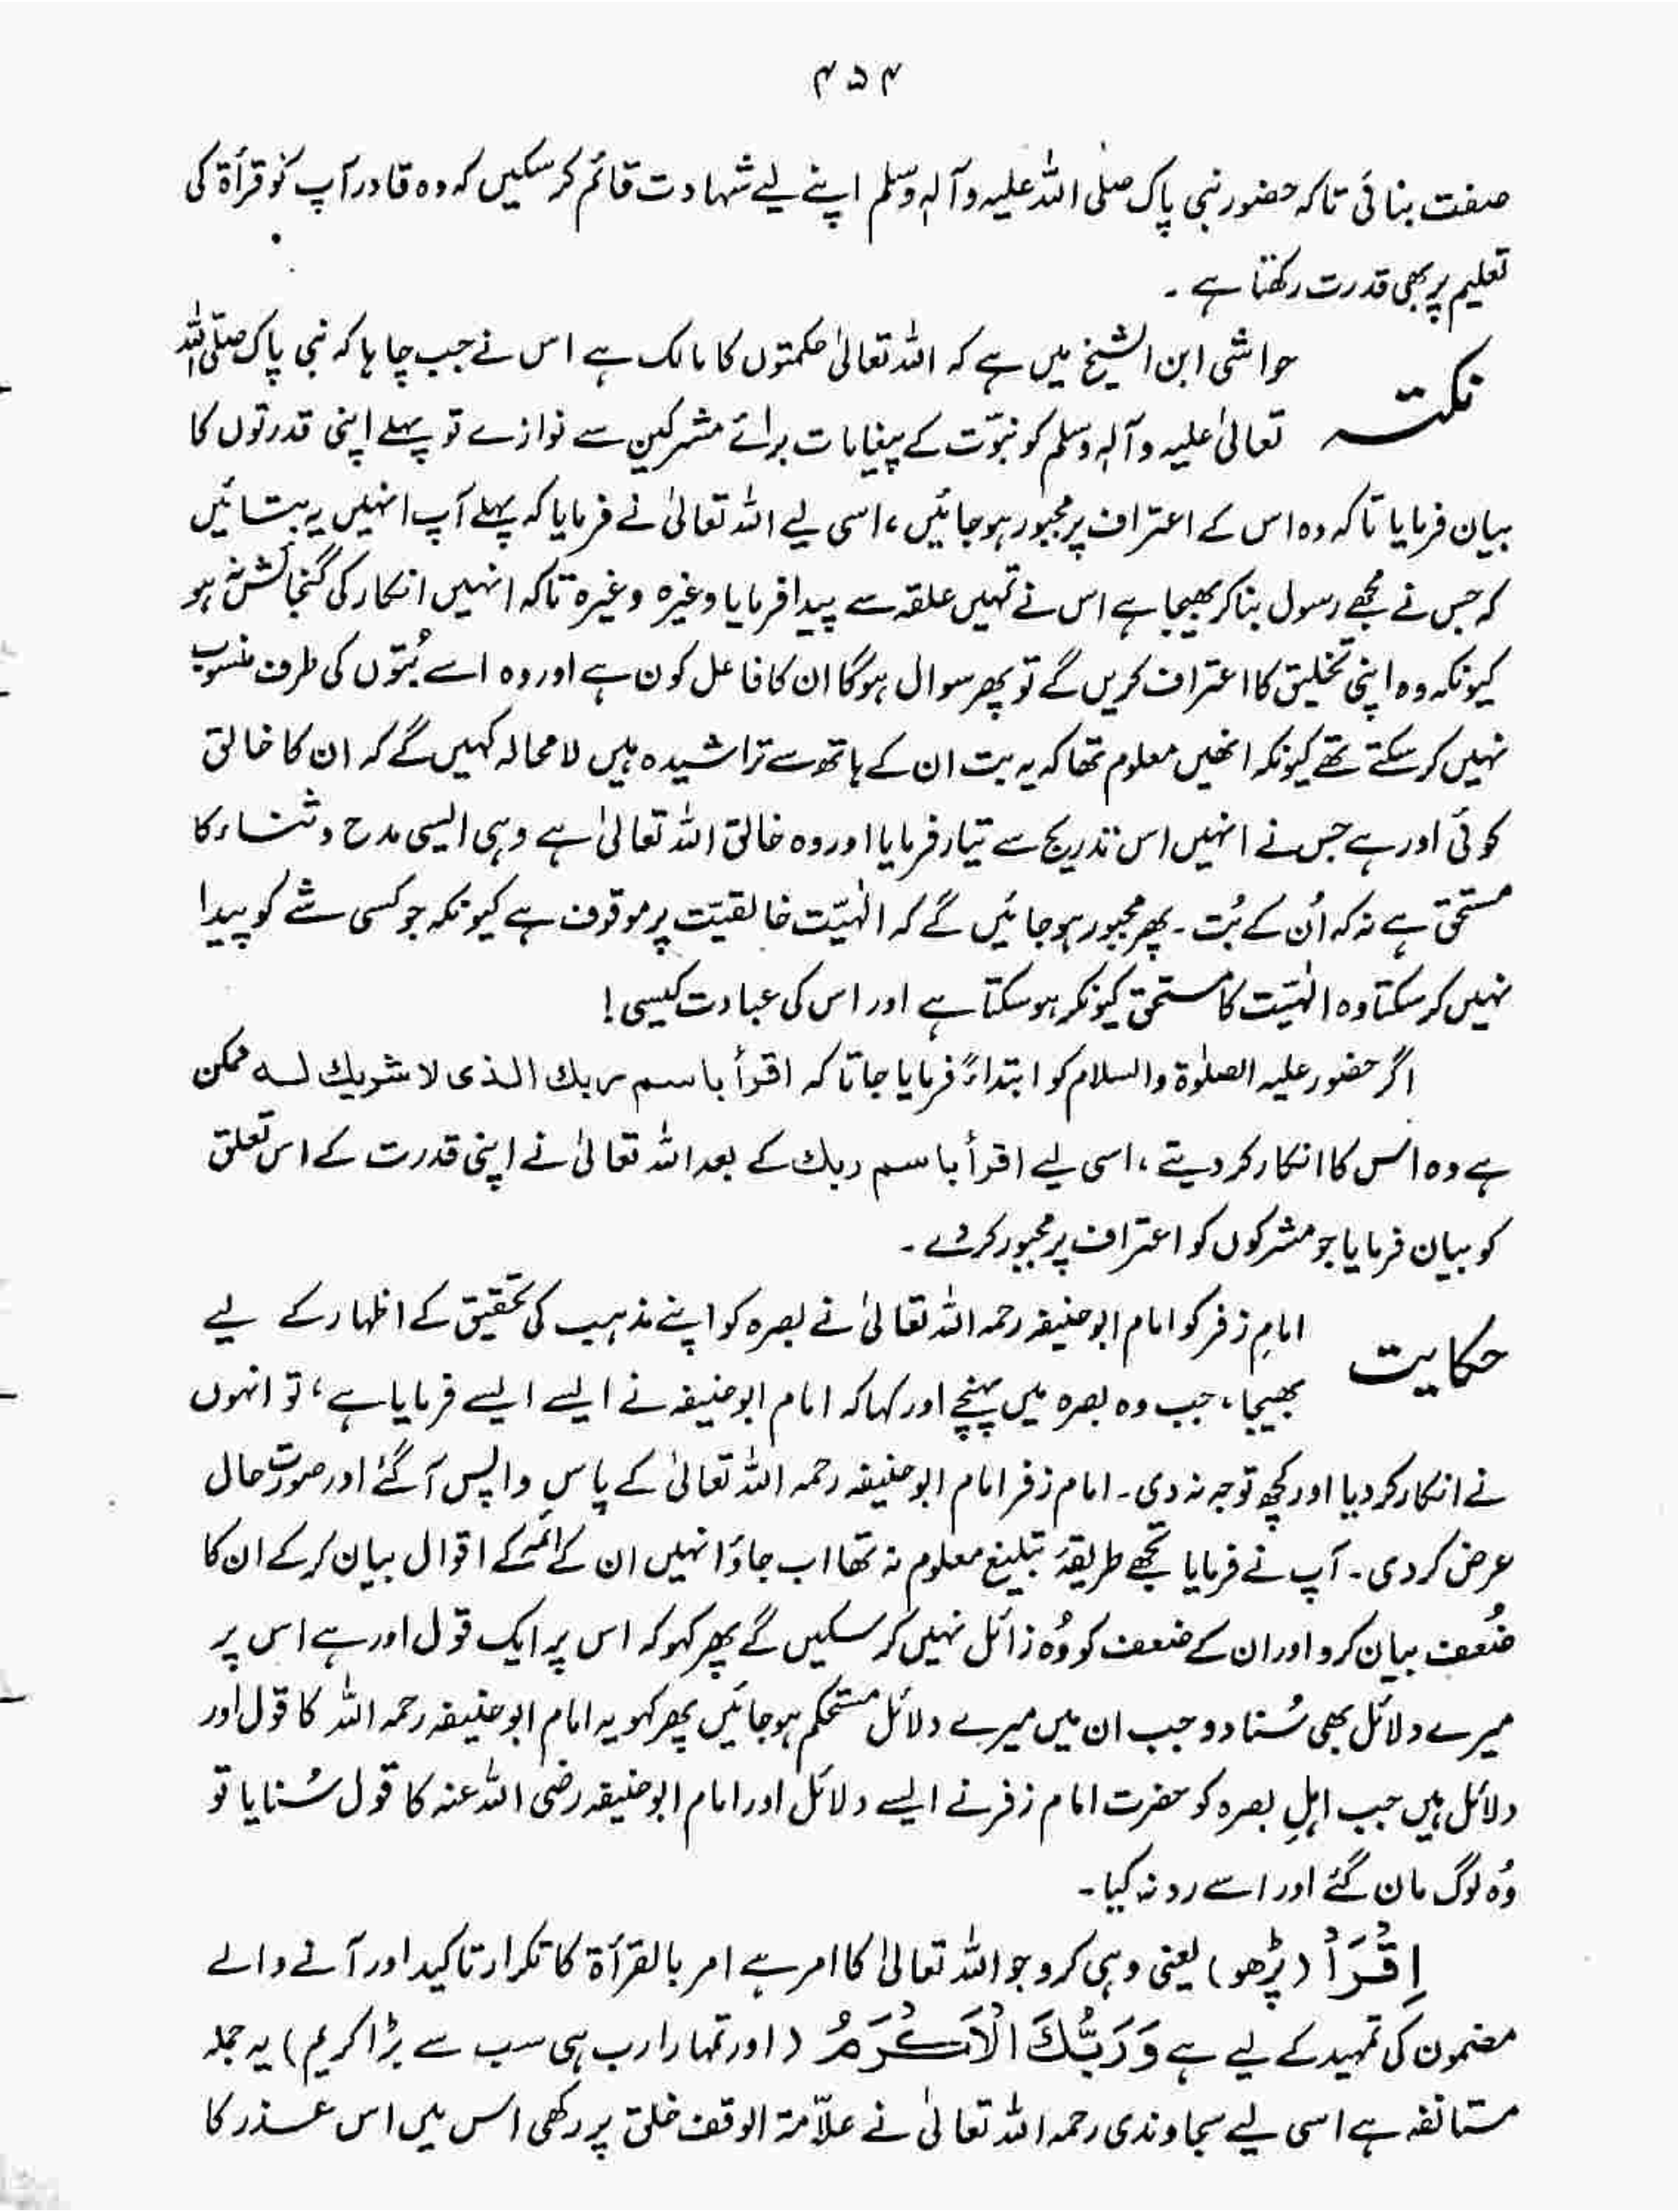 ۴۵۴
صفت بنائی تاکہ حضور نبی پاک صلی اللہ علیہ وآلہٖ وسلم اپنے لیے شہادت قائم کر سکیں کہ وہ قادر آپ کو قرأۃ کی
تعلیم پر بھی قدرت رکھتا ہے ۔
حواشی ابن الشیخ میں ہے کہ اللہ تعالیٰ حکمتوں کا مالک ہے اس نے جب چاہا کہ نبی پاک صلّی اللہ
نکتہ
تعالیٰ علیہ وآلہٖ وسلم کو نبوّت کے پیغامات برائے مشرکین سے نوازے تو پہلے اپنی قدرتوں کا
بیان فرمایا تاکہ وہ اس کے اعتراف پر مجبور ہو جائیں ، اسی لیے اللہ تعالیٰ نے فرمایا کہ پہلے آپ انہیں یہ بتائیں
کہ جس نے مجھے رسول بنا کر بھیجا ہے اس نے تمہیں علقہ سے پیدا فرمایا وغیرہ وغیرہ تاکہ انہیں انکار کی گنجائش نہ ہو
کیونکہ وہ اپنی تخلیق کا اعتراف کریں گے تو پھر سوال ہوگا ان کا فاعل کون ہے اور وہ اسے بُتوں کی طرف منسوب
نہیں کر سکتے تھے کیونکہ انھیں معلوم تھا کہ یہ بت ان کے ہاتھ سے تراشیدہ ہیں لا محالہ کہیں گے کہ ان کا خالق
کوئی اور ہے جس نے انہیں اس تدریج سے تیار فرمایا اور وہ خالق اللہ تعالیٰ ہے وہی ایسی مدح و ثناء کا
مستحق ہے نہ کہ اُن کے بُت ۔ پھر مجبور ہو جائیں گے کہ الٰہیّت خالقیّت پر موقوف ہے کیونکہ جو کسی شے کو پیدا
نہیں کر سکتا وہ الٰہیّت کا مستحق کیونکر ہو سکتا ہے اور اس کی عبادت کیسی !
اگر حضور علیہ الصلوٰۃ والسلام کو ابتداءً فرمایا جاتا کہ اقرأ باسم ربك الذی لا شریك لہ ممکن
ہے وہ اس کا انکار کر دیتے ، اسی لیے اقرأ باسم ربك کے بعد اللہ تعالیٰ نے اپنی قدرت کے اس تعلق
کو بیان فرمایا جو مشرکوں کو اعتراف پر مجبور کر دے ۔
امامِ زفر کو امام ابوحنیفہ رحمہ اللہ تعالیٰ نے بصرہ کو اپنے مذہب کی تحقیق کے اظہار کے لیے
حکایت
بھیجا ، جب وہ بصرہ میں پہنچے اور کہا کہ امام ابوحنیفہ نے ایسے ایسے فرمایا ہے ، تو انہوں
نے انکار کر دیا اور کچھ توجہ نہ دی ۔ امام زفر امام ابوحنیفہ رحمہ اللہ تعالیٰ کے پاس واپس آ گئے اور صورتِ حال
عرض کر دی ۔ آپ نے فرمایا تجھے طریقۂ تبلیغ معلوم نہ تھا اب جاؤ انہیں ان کے ائمہ کے اقوال بیان کر کے ان کا
ضُعف بیان کرو اور ان کے ضعف کو وُہ زائل نہیں کر سکیں گے پھر کہو کہ اس پر ایک قول اور ہے اس پر
میرے دلائل بھی سُنا دو جب ان میں میرے دلائل مستحکم ہو جائیں پھر کہو یہ امام ابوحنیفہ رحمہ اللہ کا قول اور
دلائل ہیں جب اہلِ بصرہ کو حضرت امام زفر نے ایسے دلائل اور امام ابوحنیفہ رضی اللہ عنہ کا قول سُنایا تو
وُہ لوگ مان گئے اور اسے رد نہ کیا ۔
اِقْرَاْ ( پڑھو ) یعنی وہی کرو جو اللہ تعالیٰ کا امر ہے امر بالقرأۃ کا تکرار تاکید اور آنے والے
مضمون کی تمہید کے لیے ہے وَرَبُّكَ الْاَكْرَمُ ( اور تمہارا رب ہی سب سے بڑا کریم ) یہ جملہ
مستانفہ ہے اسی لیے سجاوندی رحمہ اللہ تعالیٰ نے علاّمۃ الوقف خلق پر رکھی اس میں اس عذر کا